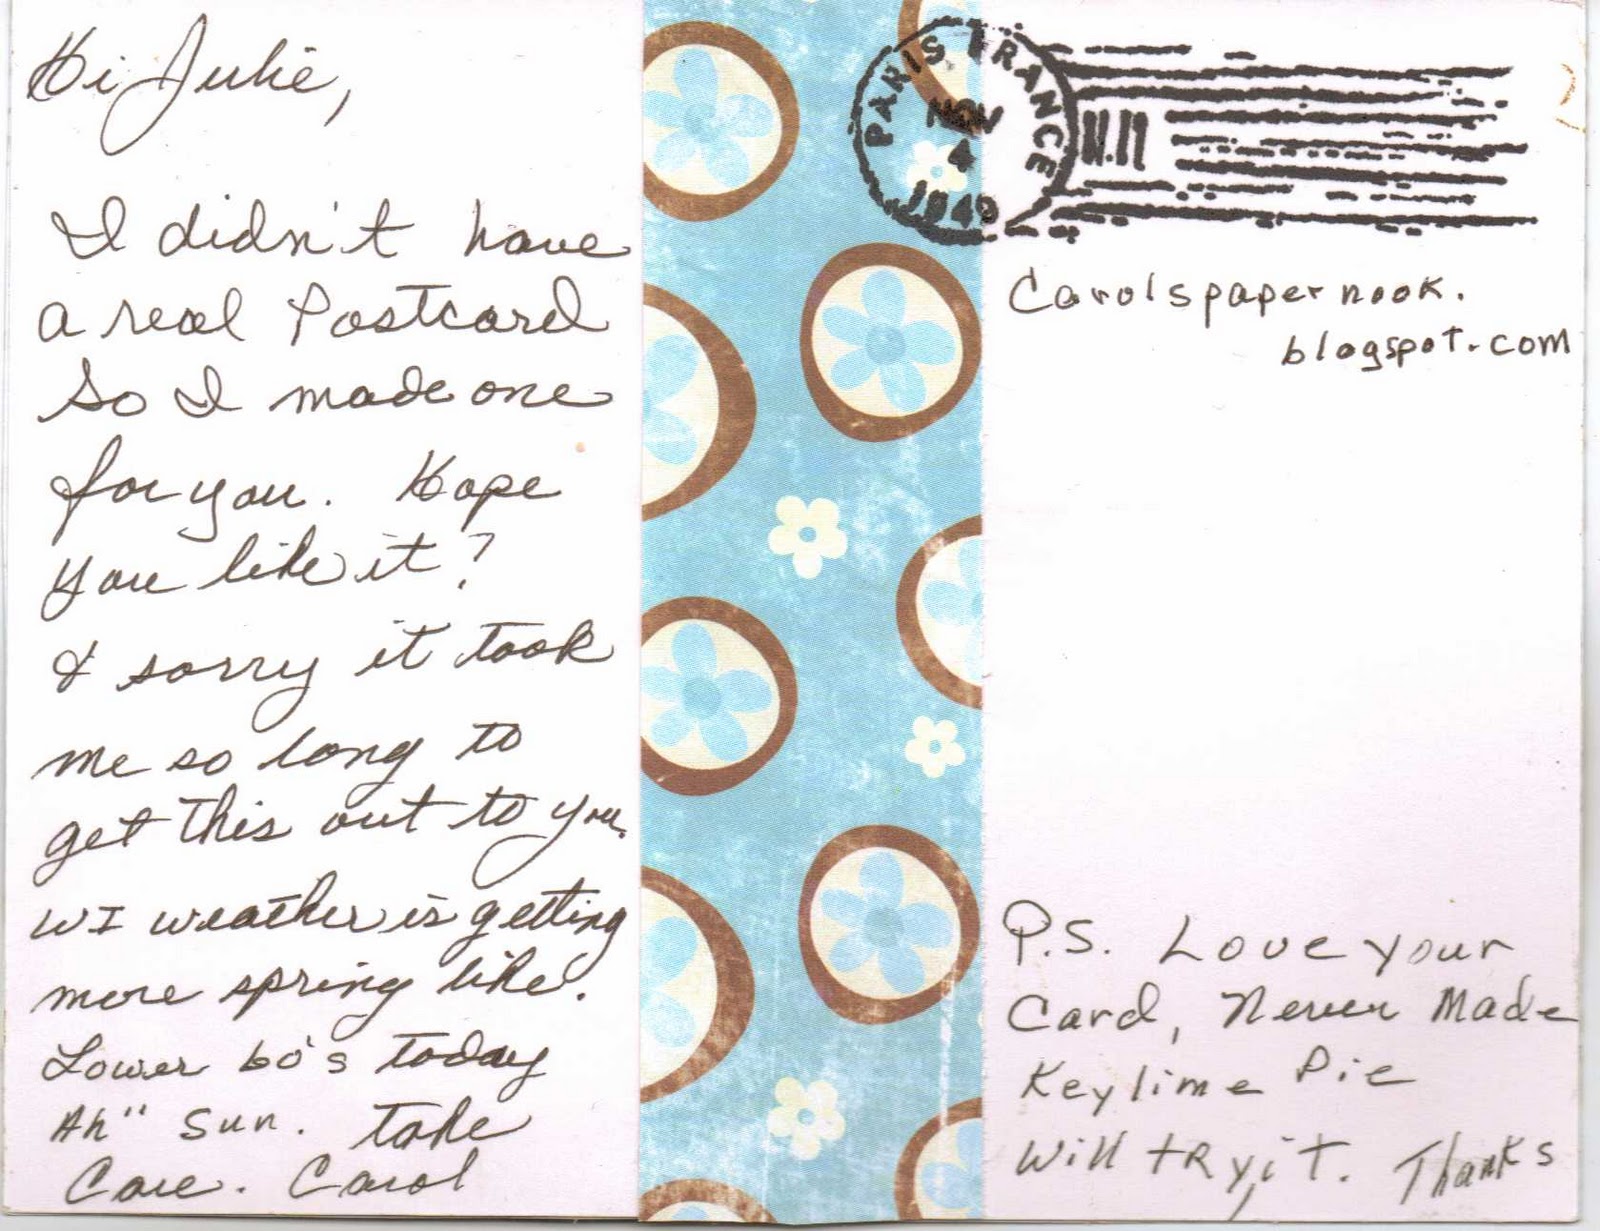 Hi Julie,
I didn't have
a real Postcard
So I made one
for you. Hope
you like it?
& sorry it took
me so long to
get this out to you.
WI weather is getting
more spring like.
Lower 60's today
Ah" Sun. take
Care. Carol
PARIS FRANCE
NOV
4
1949
Carolspapernook.
blogspot.com
P.S. Love your
Card, Never Made
Keylime Pie
Will try it. Thanks